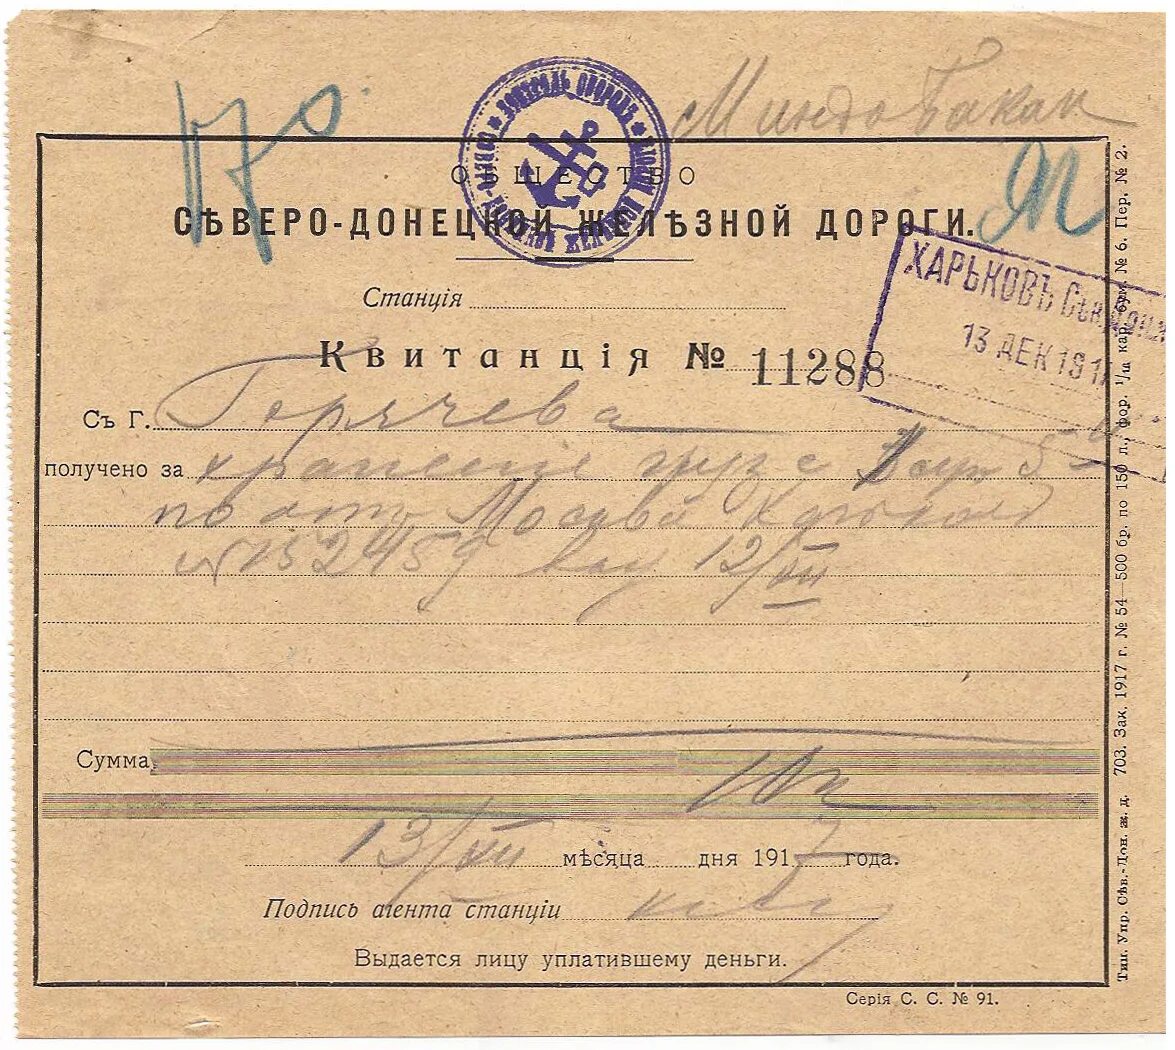 170
ОБЩЕСТВО
СѢВЕРО-ДОНЕЦКОЙ ЖЕЛѢЗНОЙ ДОРОГИ.
ХАРЬКОВЪ Сѣв. Дон.
13 ДЕК 191
Станція
Квитанція № 11288
Съ Г. Горячева
получено за храненіе груза
по отп Москва Харьков
№ 152459 12/XII
Сумма
10 к
13/XII мѣсяца дня 1917 года.
Подпись агента станціи
Выдается лицу уплатившему деньги.
Серія С. С. № 91.
Тип. Упр. Сѣв.-Дон. ж. д. 703. Зак. 1917 г. № 54—500 бр. по 150 л., фор. 1/11 кар. бум. № 6. Пер. № 2.